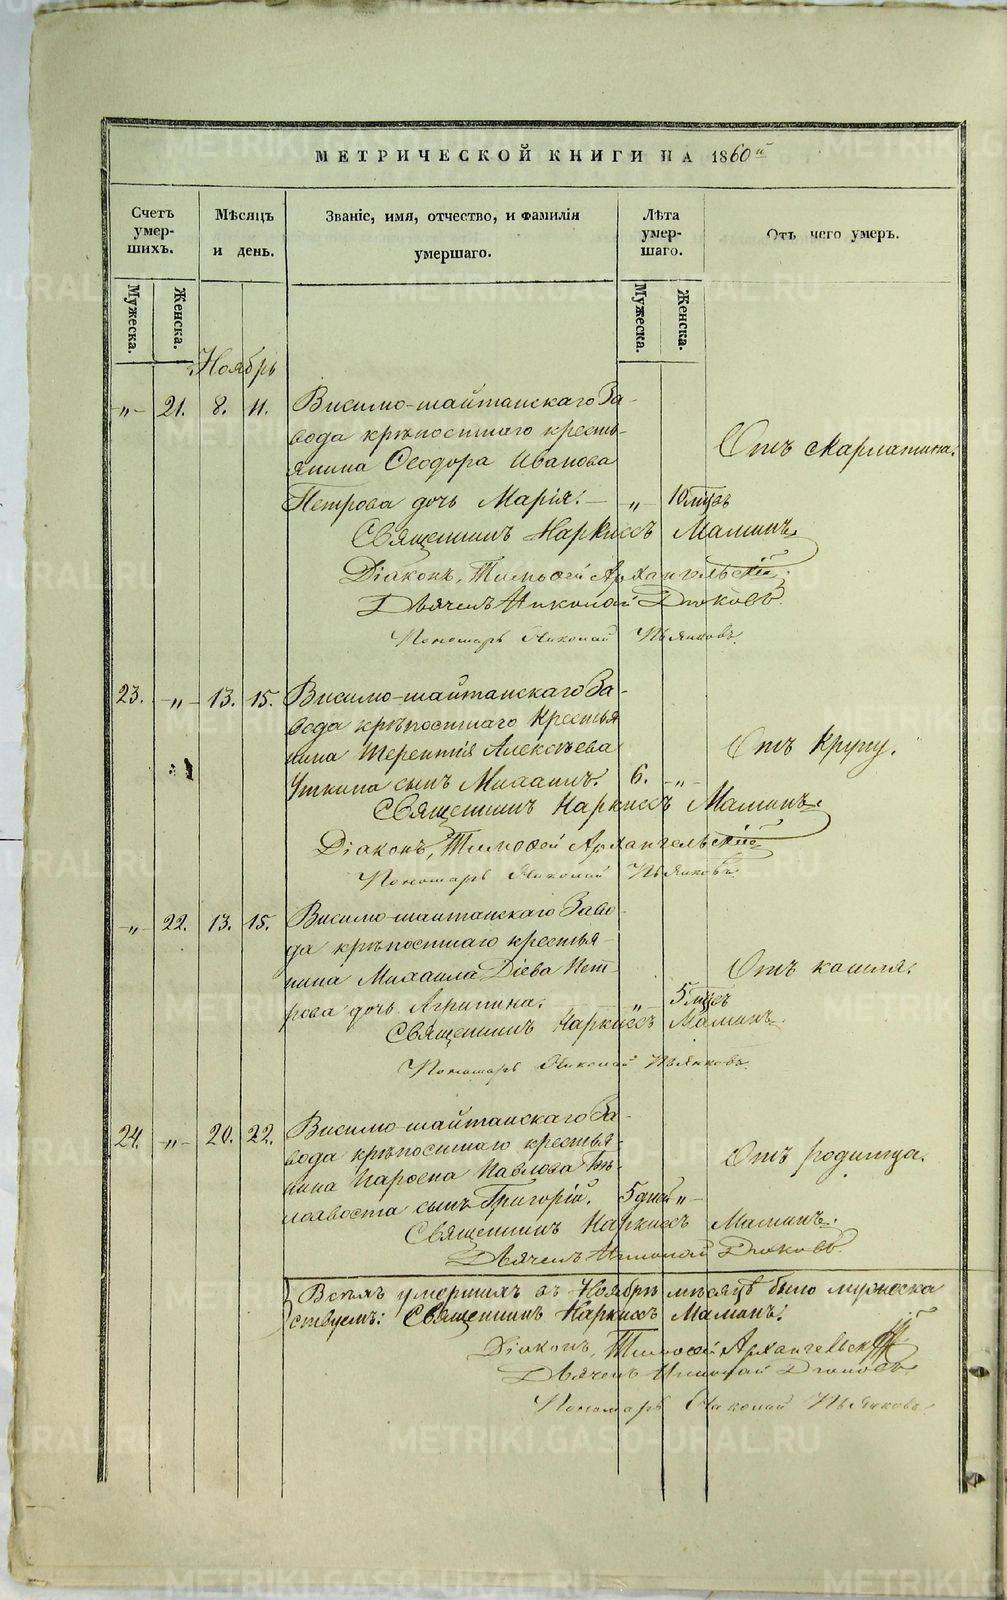 МЕТРИЧЕСКОЙ КНИГИ НА 1860й
Счетъ умер-шихъ.
Мѣсяцъ и день.
Званіе, имя, отчество, и фамилія умершаго.
Лѣта умер-шаго.
Отъ чего умеръ.
Мужеска. Женска. Мужеска. Женска.
Ноябрь
"- 21. 8. 11. Висимо-шайтанскаго За-
вода крѣпостнаго кресть-
янина Ѳеодора Иванова
Петрова дочь Марія. " 10 мцъ Отъ скарлатина.
Священникъ Наркиссъ Маминъ
Діаконъ, Тимоѳей Архангельскій
Дьячекъ Николай Дюковъ.
Пономарь Николай Пьянковъ.
23. -"- 13. 15. Висимо-шайтанскаго За-
вода крѣпостнаго Крестья
нина Терентія Алексѣева
Уткина сынъ Михаилъ. 6. -"- Отъ крупу.
Священникъ Наркиссъ Маминъ.
Діаконъ, Тимоѳей Архангельскій
Пономарь Николай Пьянковъ.
-"- 22. 13. 15. Висимо-шайтанскаго Заво
да крѣпостнаго крестья-
нина Михаила Діева Пет-
рова дочь Агрипина. " 5 мцъ Отъ кашля.
Священникъ Наркиссъ Маминъ.
Пономарь Николай Пьянковъ.
24. -"- 20. 22. Висимо-шайтанскаго За-
вода крѣпостнаго крестья-
нина Парѳена Павлова Бѣ-
лохвоста сынъ Григорій. 5 дней "- Отъ родимца.
Священникъ Наркиссъ Маминъ.
Дьячекъ Николай Дюковъ.
Всѣхъ умершихъ въ Ноябрѣ мѣсяцѣ было мужеска
ствуемъ: Священникъ Наркиссъ Маминъ.
Діаконъ, Тимоѳей Архангельскій
Дьячекъ Николай Дюковъ.
Пономарь Николай Пьянковъ.
METRIKI.GASO-URAL.RU